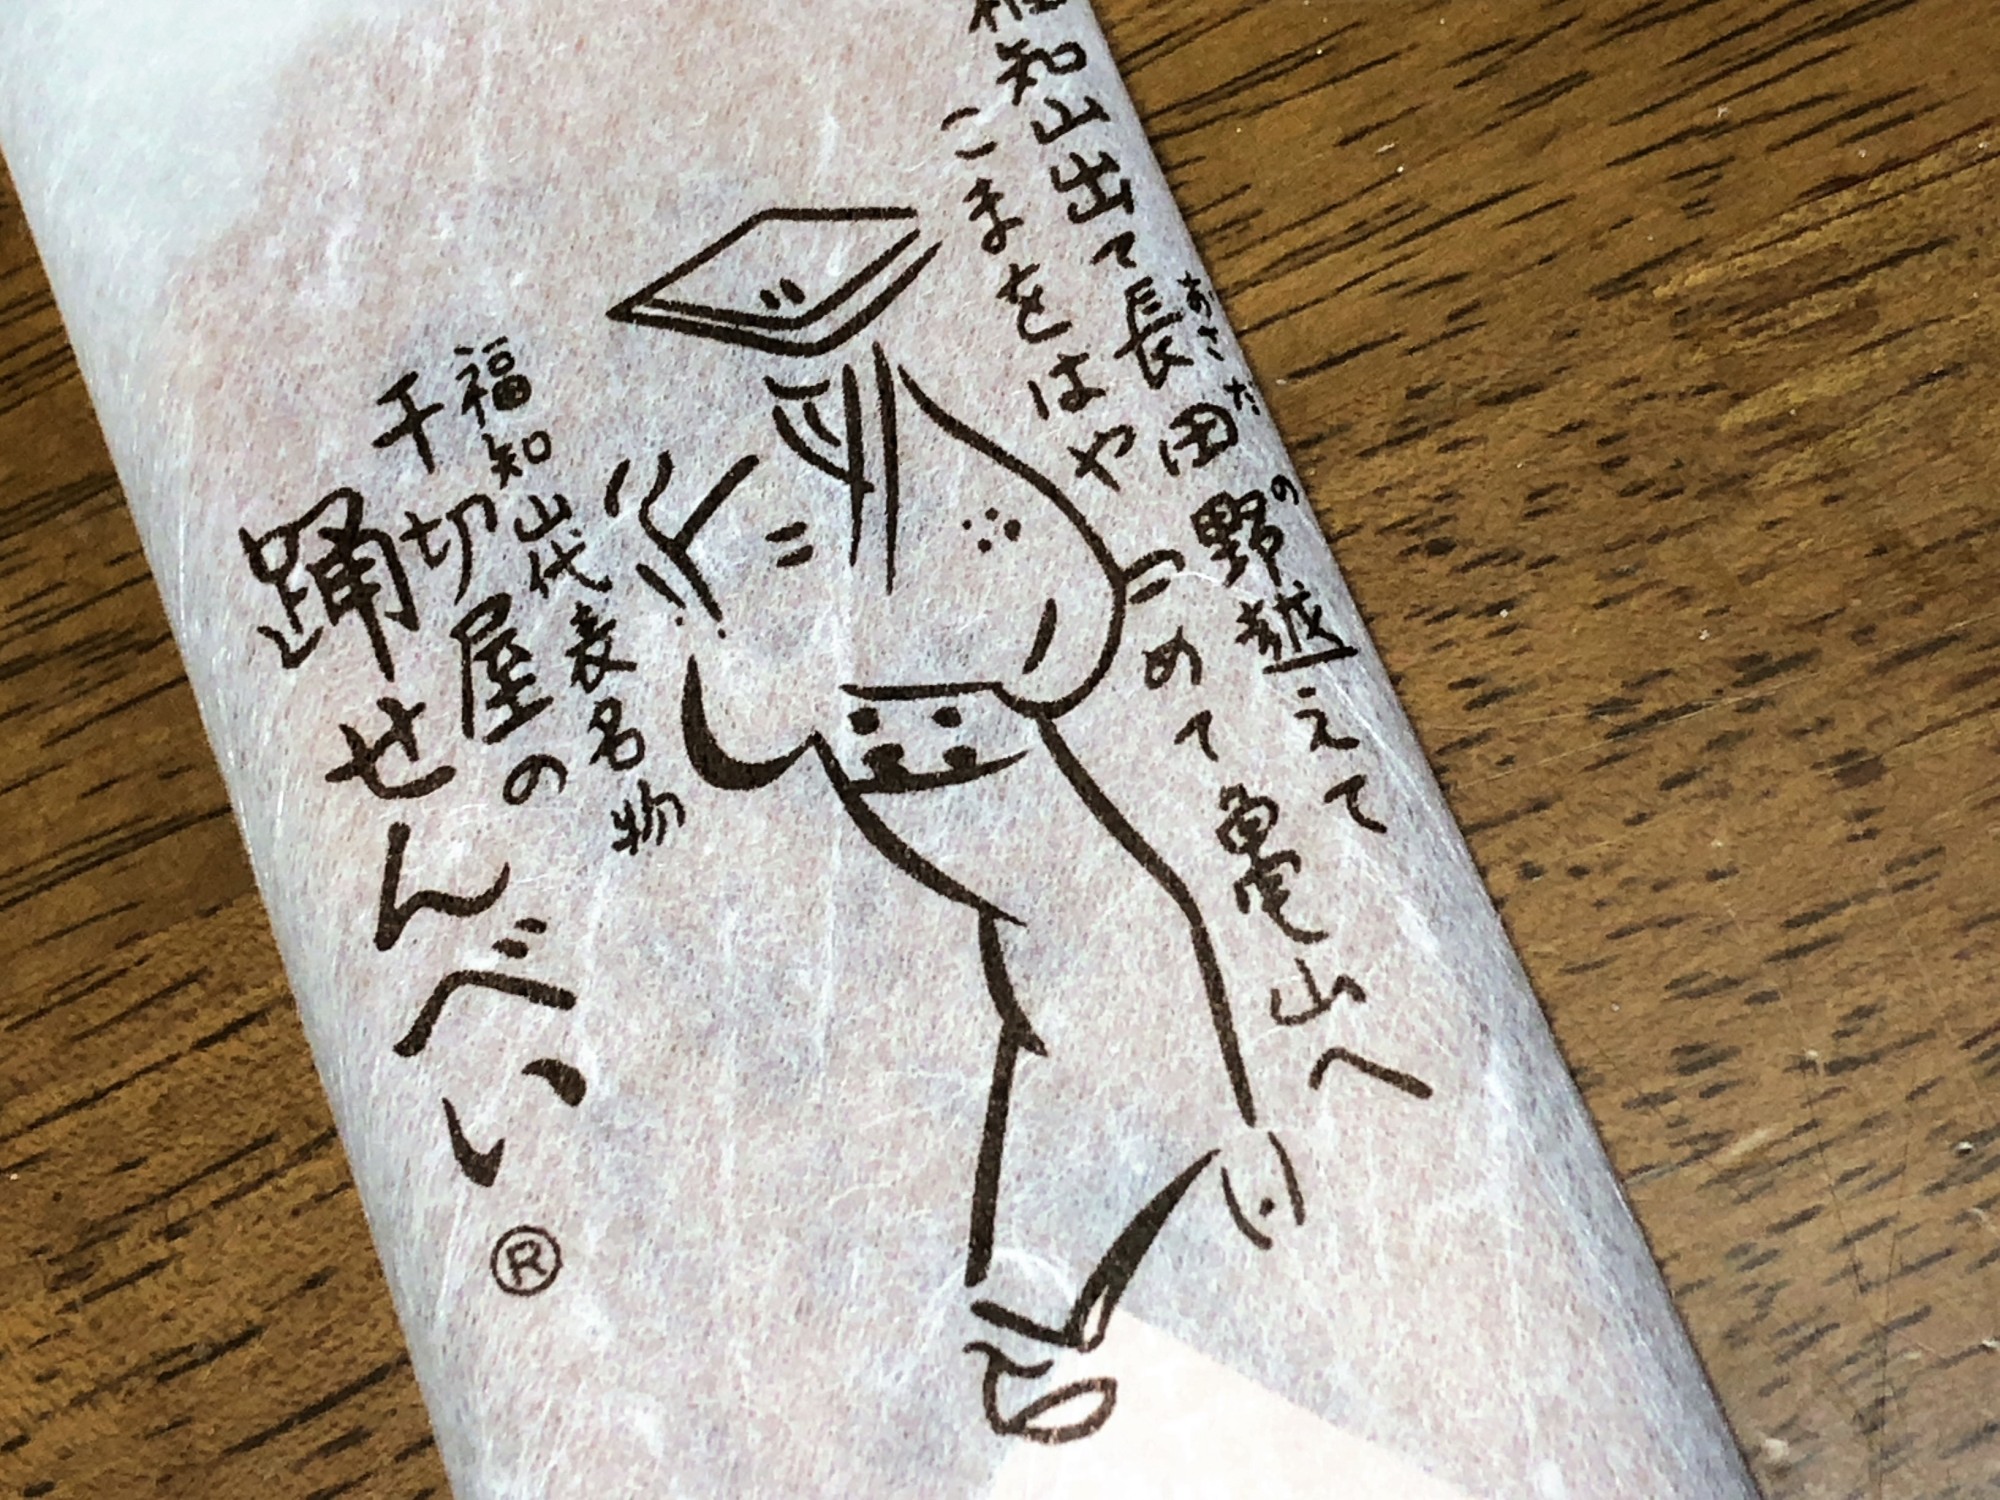 福知山出て長田野越えて
あさだ
の
こまをはやめて亀山へ
福知山代表名物
千切屋の
踊せんべい
®